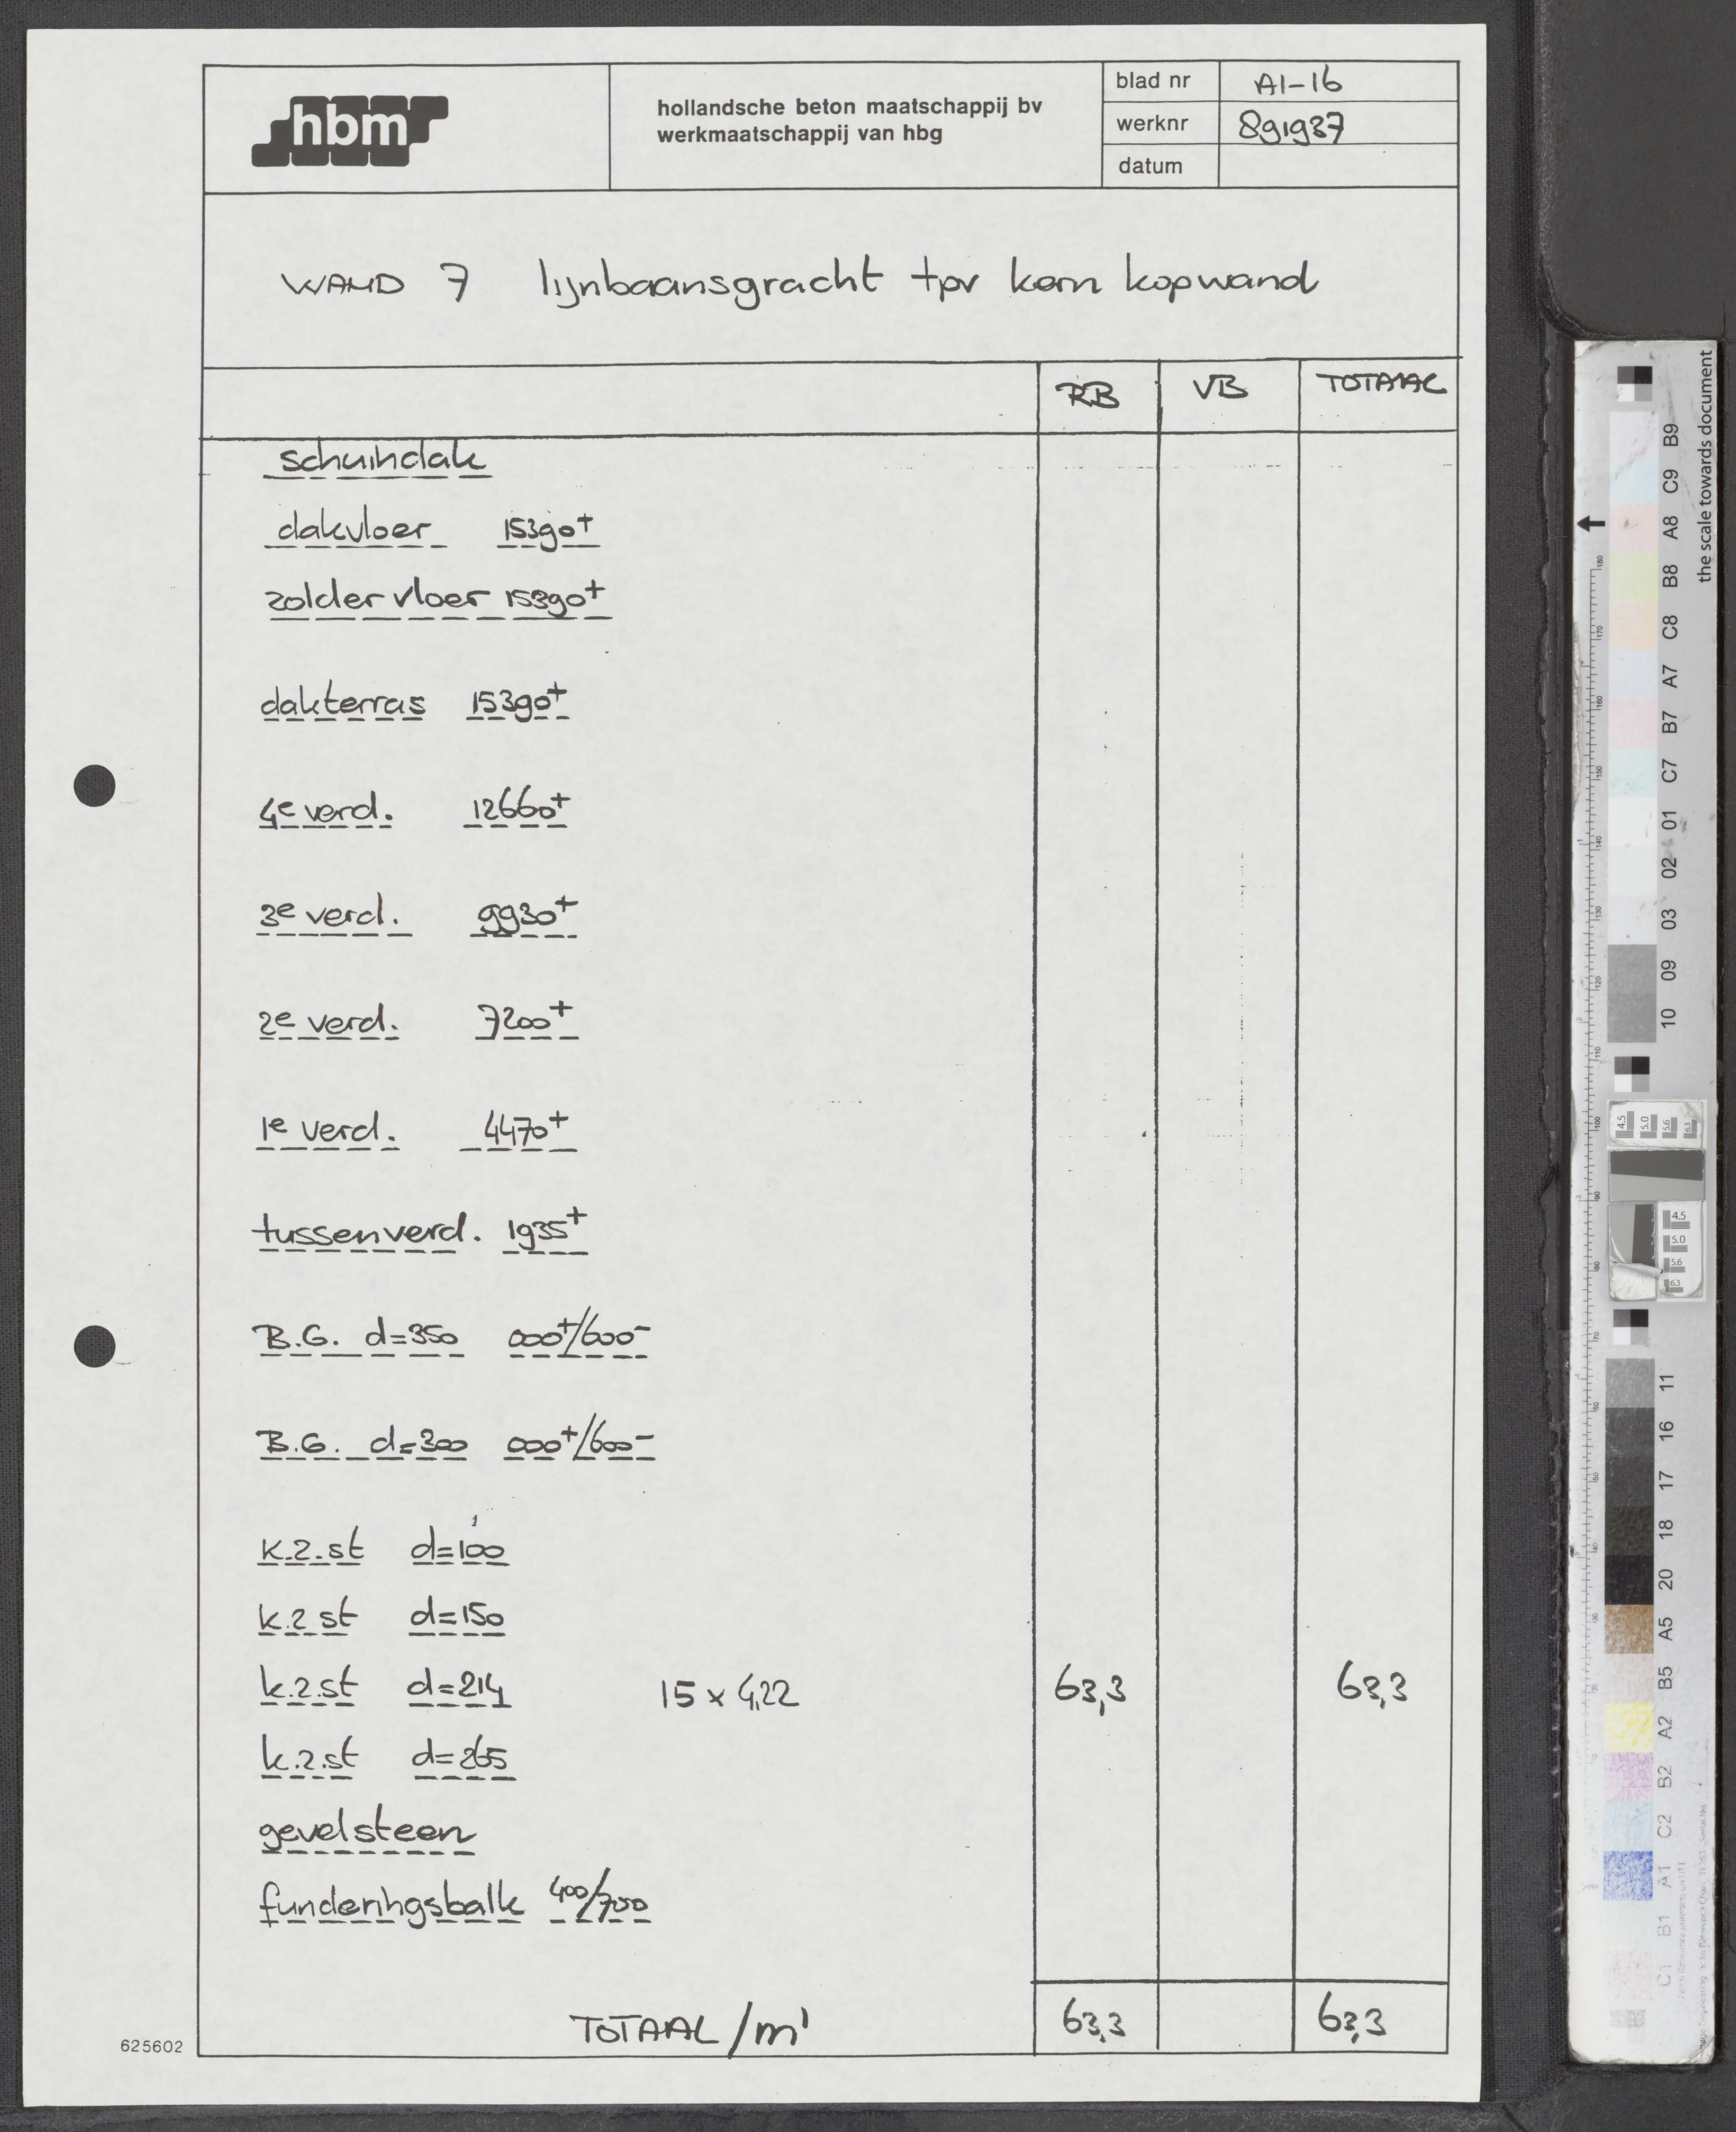 hbm
hollandsche beton maatschappij bv
werkmaatschappij van hbg
blad nr A1-16
werknr 891937
datum
WAND 7 lijnbaansgracht tpv kern kopwand
RB VB TOTAAL
schuindak
dakvloer 15390+
zoldervloer 15390+
dakterras 15390+
4e verd. 12660+
3e verd. 9930+
2e verd. 7200+
1e verd. 4470+
tussenverd. 1935+
B.G. d=350 000+/600-
B.G. d=300 000+/600-
k.z.st d=100
k.z.st d=150
k.z.st d=214 15 x 4,22 63,3 63,3
k.z.st d=265
gevelsteen
funderingsbalk 400/700
TOTAAL/m¹ 63,3 63,3
625602
the scale towards document
B9
C9
A8
B8
C8
A7
B7
C7
01
02
03
09
10
11
16
17
18
20
A5
B5
A2
B2
C2
A1
B1
C1